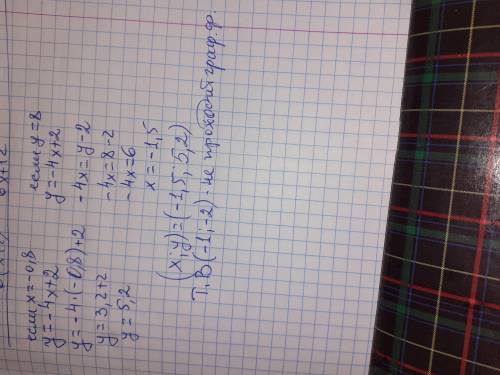 если x=-0,8 если y=8
y=-4x+2 y=-4x+2
y=-4·(-0,8)+2 -4x=y-2
y=3,2+2 -4x=8-2
y=5,2 -4x=6
x=-1,5
(x;y)=(-1,5; 5,2)
Т. В(-1;-2) не проходит граф. ф.